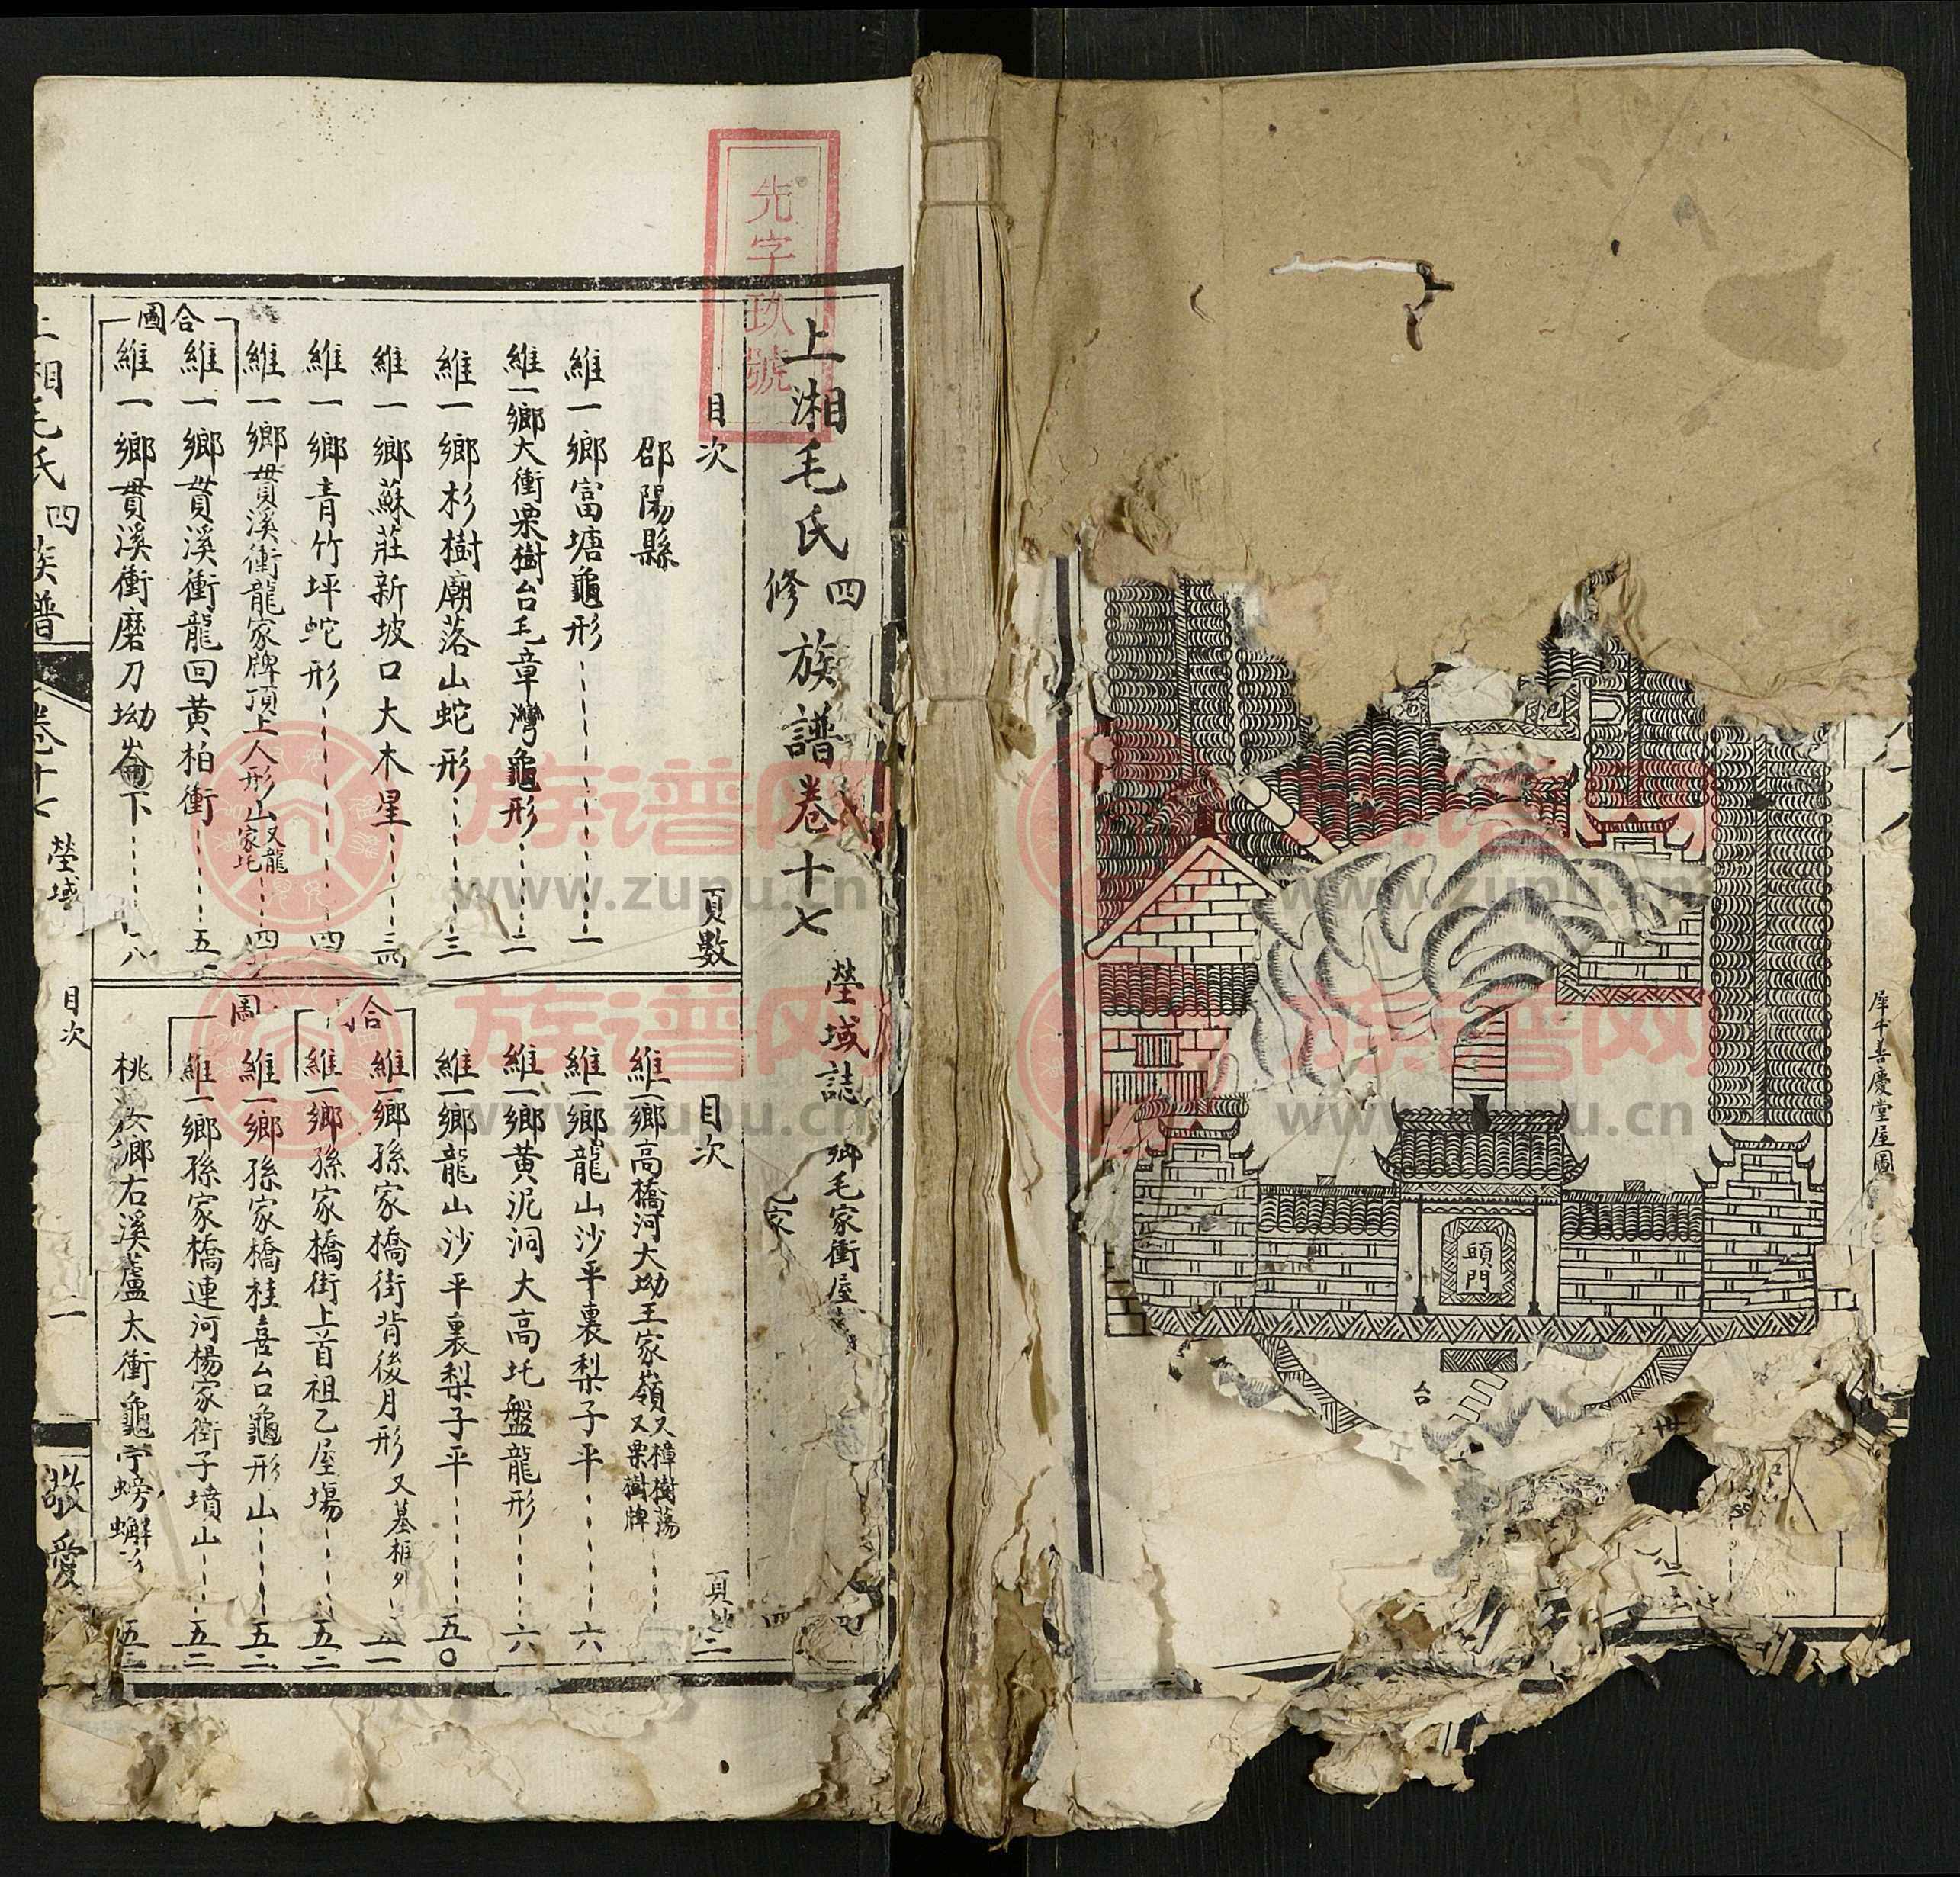 犀牛善慶堂屋圖
頭門
台
先字玖號
上湘毛氏四修族譜卷十七
塋域誌
鄉毛家衝屋
目次
頁數
邵陽縣
維一鄉富塘龜形 一
維一鄉大衝栗樹台毛章灣龜形 二
維一鄉杉樹廟落山蛇形 三
維一鄉蘇莊新坡口大木星 三
維一鄉青竹坪蛇形 四
維一鄉貫溪衝龍家牌頂上人形山又龍家圫 四
合圖
維一鄉貫溪衝龍回黃柏衝 五
維一鄉貫溪衝磨刀坳崙下 八
目次
頁
維一鄉高橋河大坳王家嶺又樟樹蕩又栗樹牌
維一鄉龍山沙平裏梨子平 六
維一鄉黃泥洞大高圫盤龍形 六
維一鄉龍山沙平裏梨子平 五〇
合
維一鄉孫家橋街背後月形又墓樁外 五一
維一鄉孫家橋街上首祖乙屋場 五二
圖
維一鄉孫家橋桂喜台龜形山 五二
維一鄉孫家橋連河楊家街子墳山 五二
桃汝鄉右溪蘆太衝龜亭螃蠏形 五二
上湘毛氏四族譜
卷十七
塋域
目次
一
敬愛
族谱网
www.zupu.cn
族谱网
www.zupu.cn
族谱网
www.zupu.cn
族谱网
www.zupu.cn